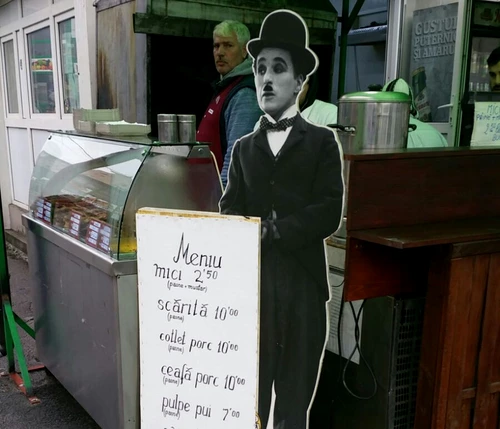 GUSTUL
PUTERNIC
SI AMARUI
Meniu
mici 2'50
(paine + mustar)
scărită 10'00
(paine)
cotlet porc 10'00
(paine)
ceafă porc 10'00
(paine)
pulpe pui 7'00
(paine)